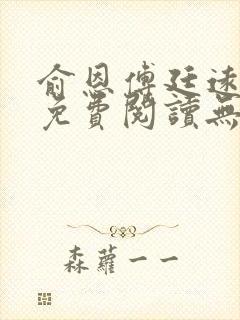 俞恩傅廷遠
免費閱讀無
森蘿一一